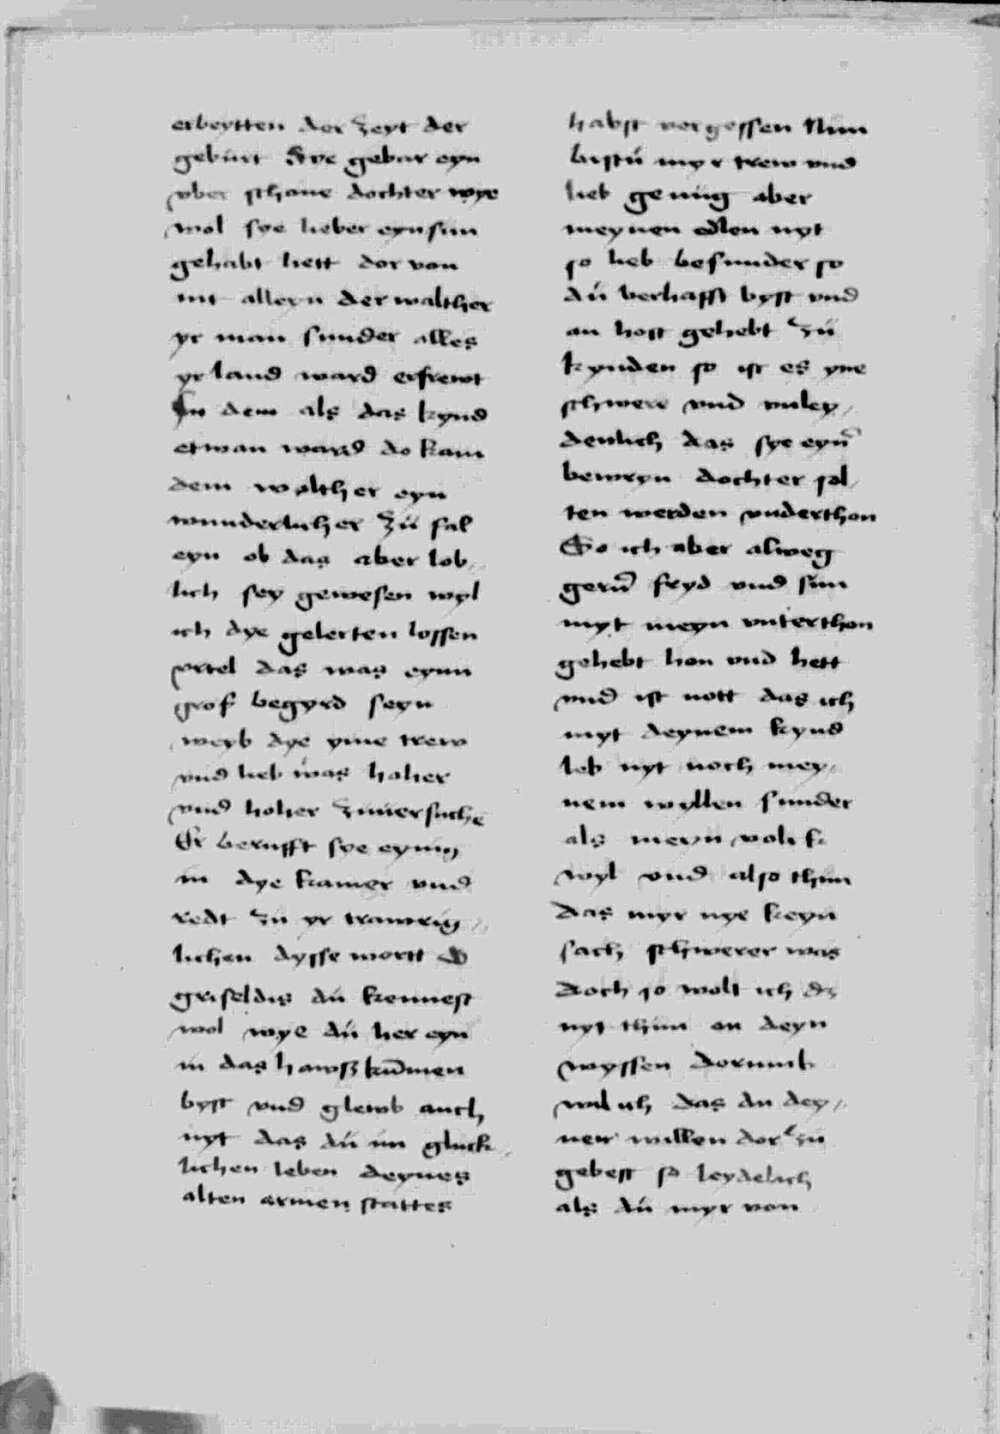 erbeytten der zeyt der
geburt Sye gebar eyn
vber schone dochter wye
wol sye lieber eyn sun
gehabt hett dor von
nit alleyn der walther
yr man sunder alles
yr land ward erfrewt
In dem als das kynd
etwan ward do kam
dem walther eyn
wunderlicher zü fal
eyn ob das aber lob„
lich sey gewesen wyl
ich dye gelerten lossen
vrtel das was eynn
gros begyrd seyn
weyb dye yme trew
vnd lieb was hoher
vnd hoher zuuersuchē
Er berufft sye eynig
in dye kamer vnd
redt zu yr trawrig„
lichen dysse wortt
griseldis dü kennest
wol wye dü her eyn
in das hawß kūmen
byst vnd glewb auch
nyt das dü im gluck„
lichen leben deynes
alten armen stattes
habst vergessen Nun
bistü myr trew vnd
lieb genüg aber
meynen edlen nyt
so lieb besunder so
dü verhafft byst vnd
an host gehebt zü
kynden so ist es yne
schwere vnd vnley„
denlich das sye eynr̄
bewryn dochter sol„
ten werden vnderthon
So ich aber alweg
gerñ fryd vnd sün
myt meyn vnterthon
gehebt hon vnd hett
vnd ist nott das ich
myt deynem kynd
leb nyt noch mey„
nem wyllen sunder
als meyn volck
wyl vnd also thün
das myr nye keyn
sach schwerer was
doch so wolt ich dz
nyt thün on deyn
wyssen dorumb
wil ich das du dey„
nen willen dor zü
gebest so leydelich
als dü myr von